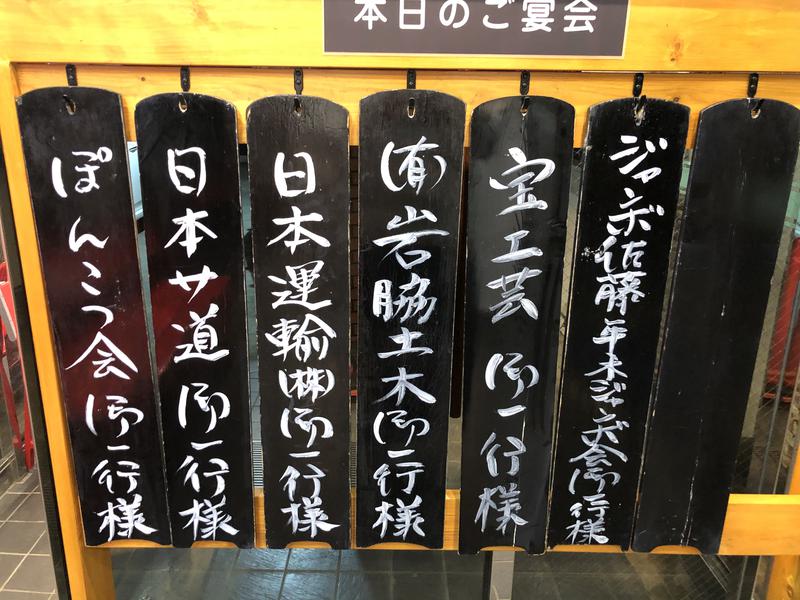 本日のご宴会
ジャンボ佐藤年末ジャンボ会御一行様
宝工芸 御一行様
(有)岩脇土木御一行様
日本運輸(株)御一行様
日本サ道御一行様
ぽんこつ会御一行様